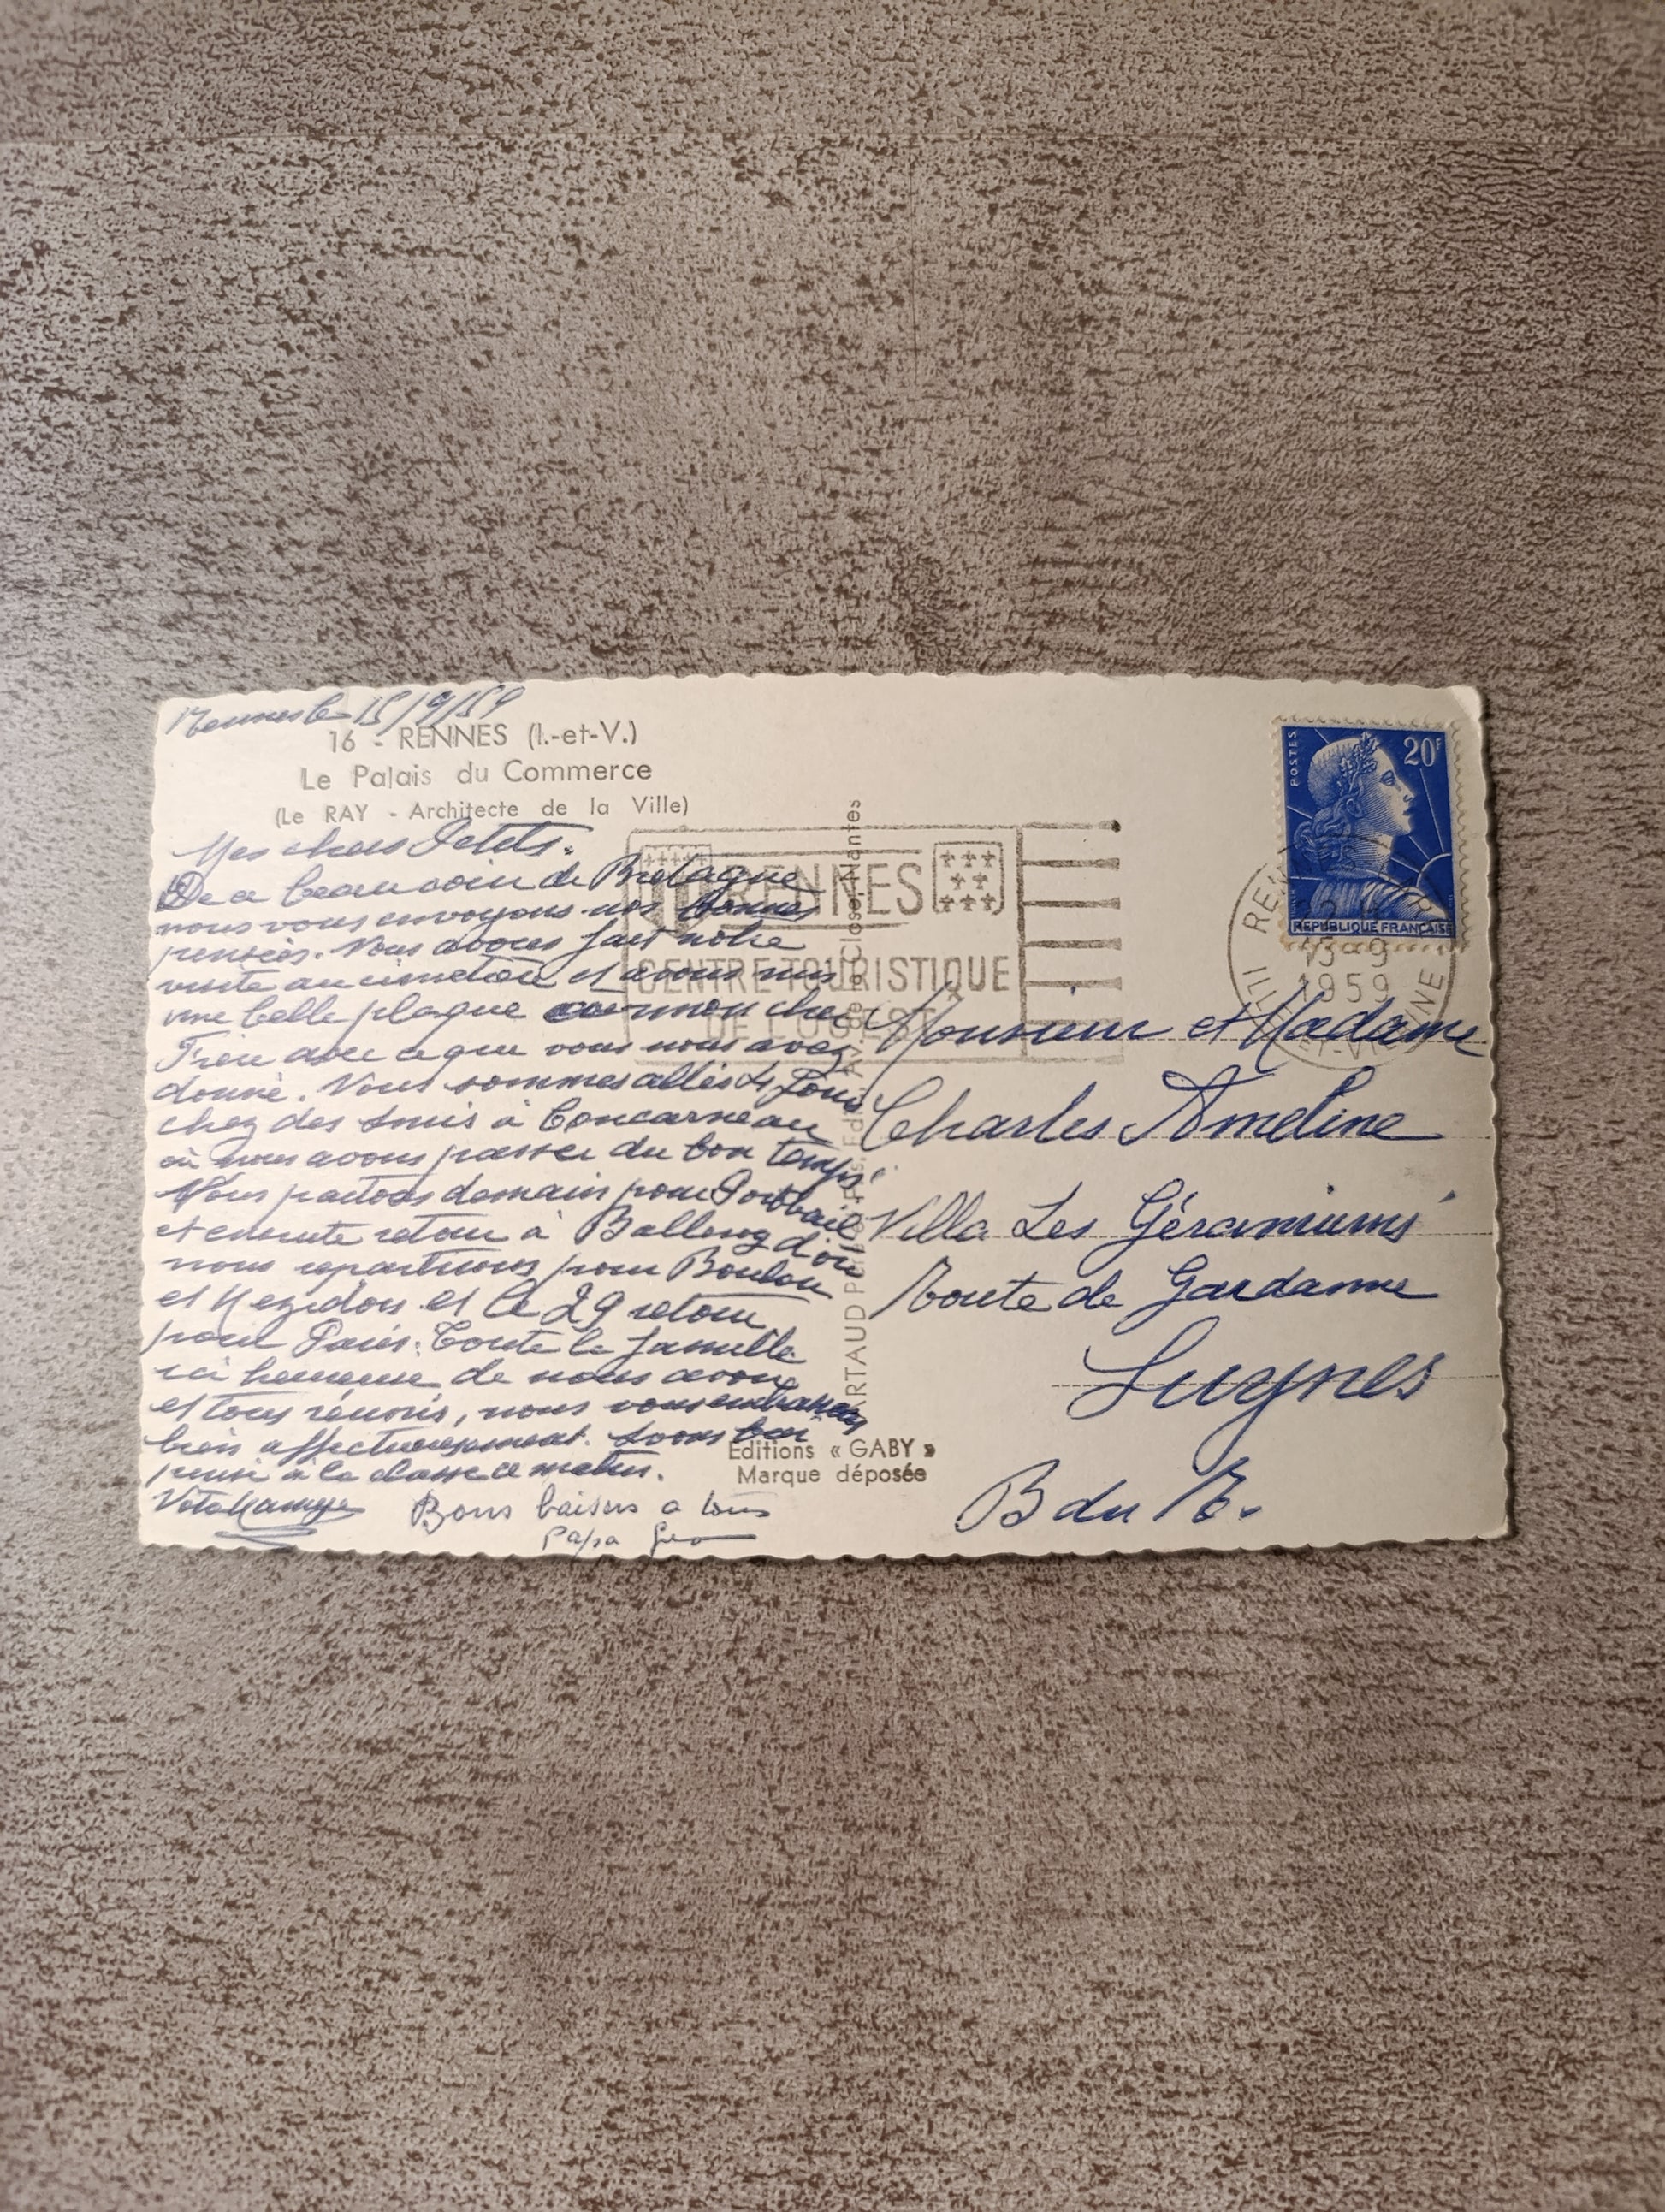 Rennes le 15/9/59
16 - RENNES (I.-et-V.)
Le Palais du Commerce
(Le RAY - Architecte de la Ville)
Mes chers Petits.
De ce beau coin de Bretagne
nous vous envoyons nos bonnes
pensées. Nous avons fait notre
visite au cimetière et avons mis
une belle plaque mon cher
avec ce que vous nous avez
donné. Nous sommes allés
chez des amis à Concarneau
où nous avons passer du bon temps.
Nous partons demain pour Portbail
et ensuite retour à Balleroy d'où
nous repartirons pour Boulon
et Mezidon et le 29 retour
pour Paris. Toute la famille
ici heureuse de nous avoir
et tous réunis, nous vous embrassons
bien affectueusement.
pensé à la classe ce matin.
Bons baisers a tous
Papa
Editions « GABY »
Marque déposée
RENNES
CENTRE TOURISTIQUE
DE L'OUEST
POSTES
20F
REPUBLIQUE FRANÇAISE
1959
Monsieur et Madame
Charles Ameline
Villa Les Géraniums
Route de Gardanne
Luynes
B du R.